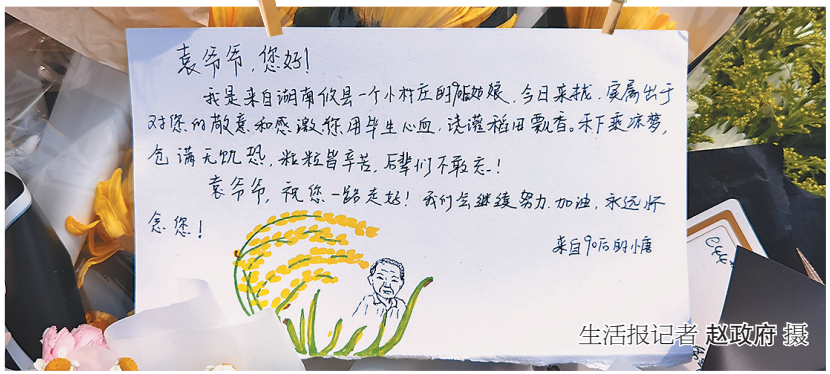 袁爷爷,您好!
我是来自湖南攸县一个小村庄的90后姑娘,今日来扰,实属出于
对您的敬意和感激,您用毕生心血,浇灌稻田飘香。禾下乘凉梦,
仓满无饥恐,粒粒皆辛苦,后辈们不敢忘!
袁爷爷,祝您一路走好!我们会继续努力、加油,永远怀
念您!
来自90后的小唐
生活报记者 赵政府 摄